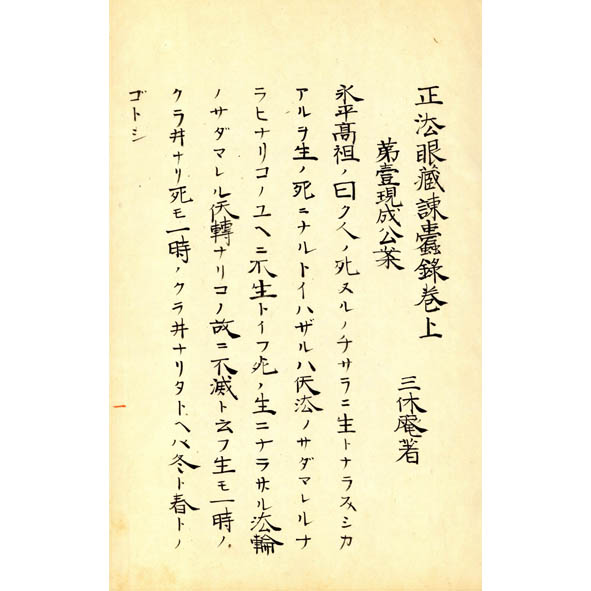 正法眼藏諫蠹錄巻上
三休庵著
第壹現成公案
永平髙祖ノ曰ク人ノ死スルノチサラニ生トナラズシカ
アルヲ生ノ死ニナルトイハザルハ仸法ノサダマレルナ
ラヒナリコノユヘニ不生トイフ死ノ生ニナラサル法輪
ノサダマレル仸轉ナリコノ故ニ不滅ト云フ生モ一時ノ
クラ井ナリ死モ一時ノクラ井ナリタトヘバ冬ト春トノ
ゴトシ
一